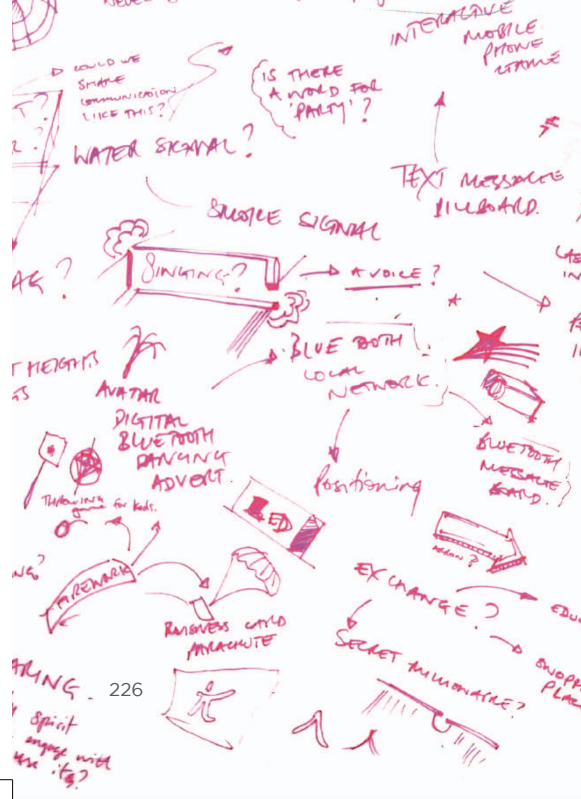 INTERACTIVE
MOBILE
PHONE
GAME
COULD WE
SHARE
COMMUNICATION
LIKE THIS?
IS THERE
A WORD FOR
'PARTY'?
WATER SIGNAL?
TEXT MESSAGE
BILLBOARD.
SMOKE SIGNAL
SINGING?
A VOICE?
BLUE TOOTH
LOCAL
NETWORK.
AVATAR
DIGITAL
BLUETOOTH
DANCING
ADVERT.
BLUETOOTH
MESSAGE
BOARD.
Positioning
THROWING
game for kids.
FIREWORK
BUSINESS CARD
PARACHUTE
EXCHANGE?
SECRET MILLIONAIRE?
226
Spirit
engage with